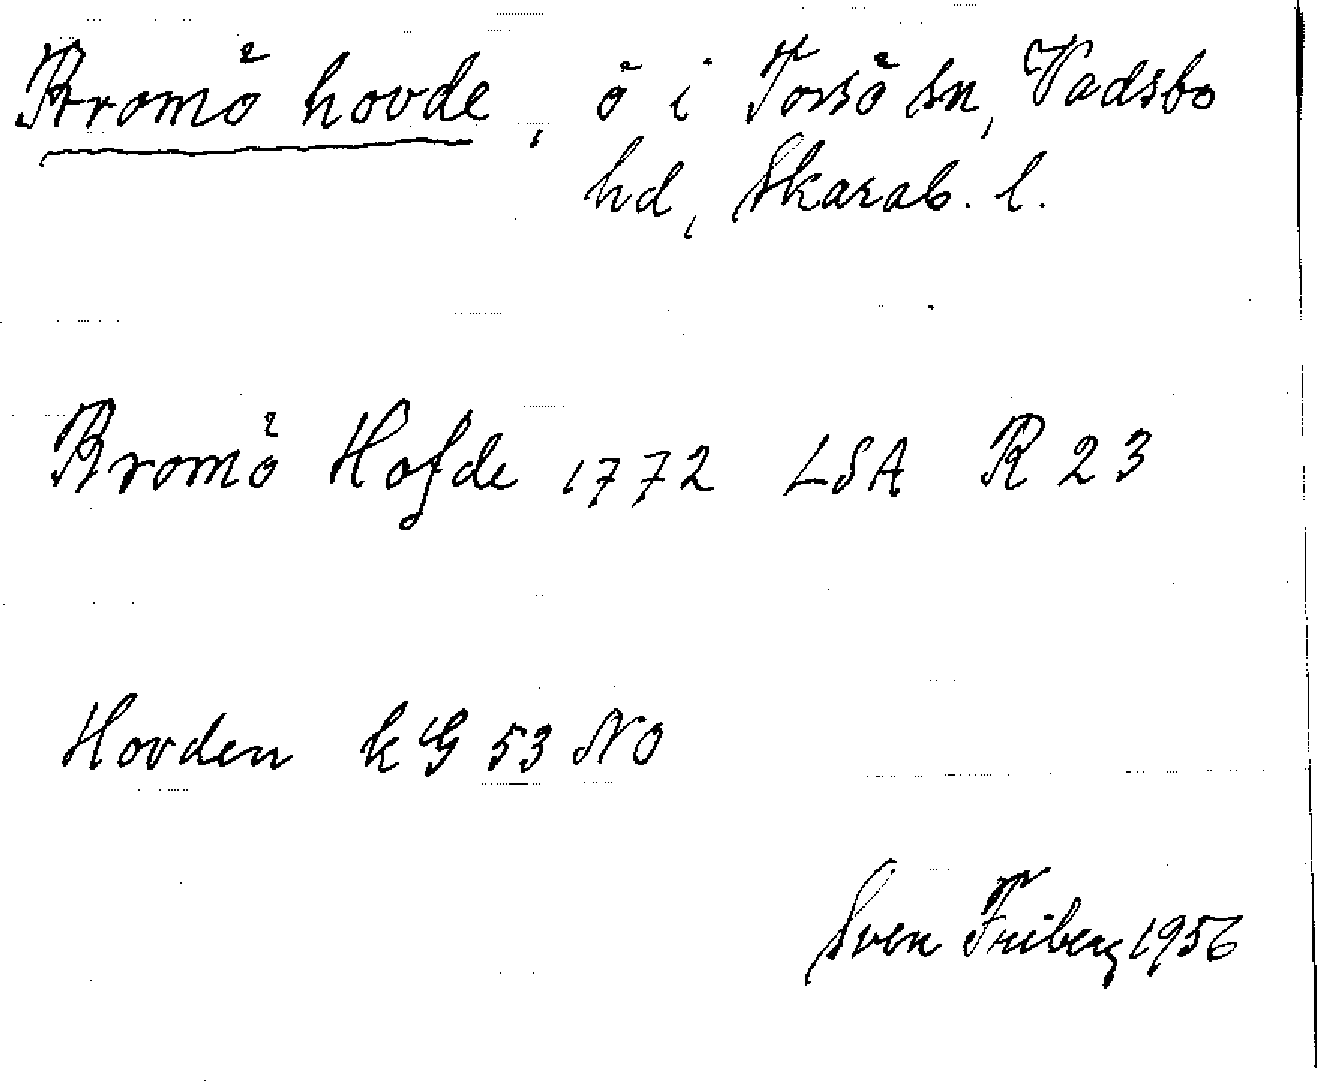 Bromö hovde, ö i Torsö sn, Vadsbo
hd, Skarab. l.
Bromö Hofde 1772 LSA R 23
Hovden kG 53 NO
Sven Friberg 1956